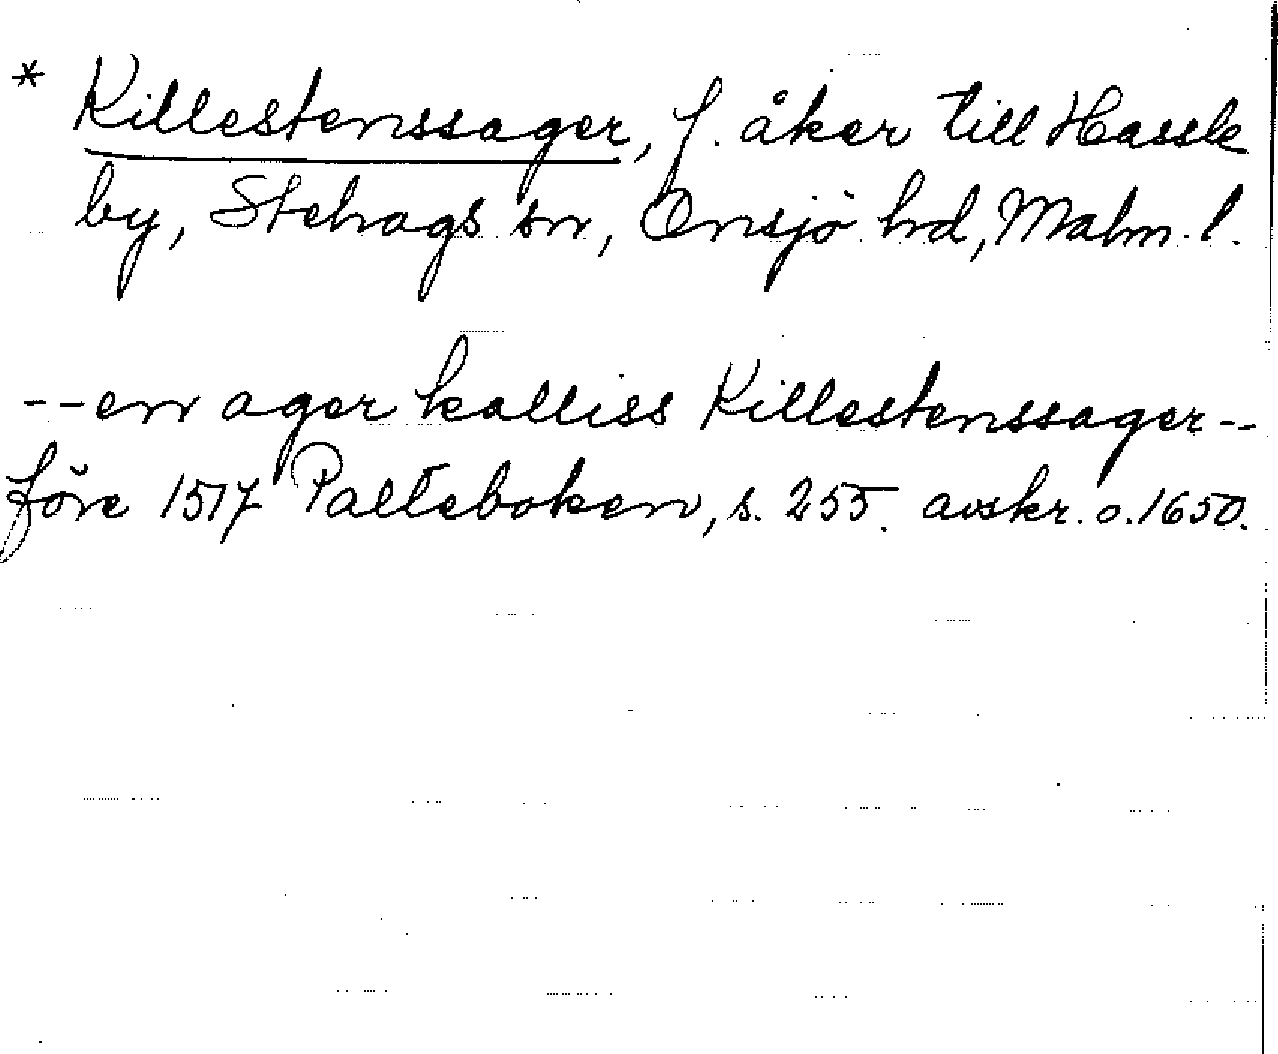 * Killestenssager, f. åker till Hassle
by, Stehags sn, Onsjö hd, Malm. l.
--en ager kalliss Killestenssager--
före 1517 Palteboken, s. 255. avskr. o. 1650.